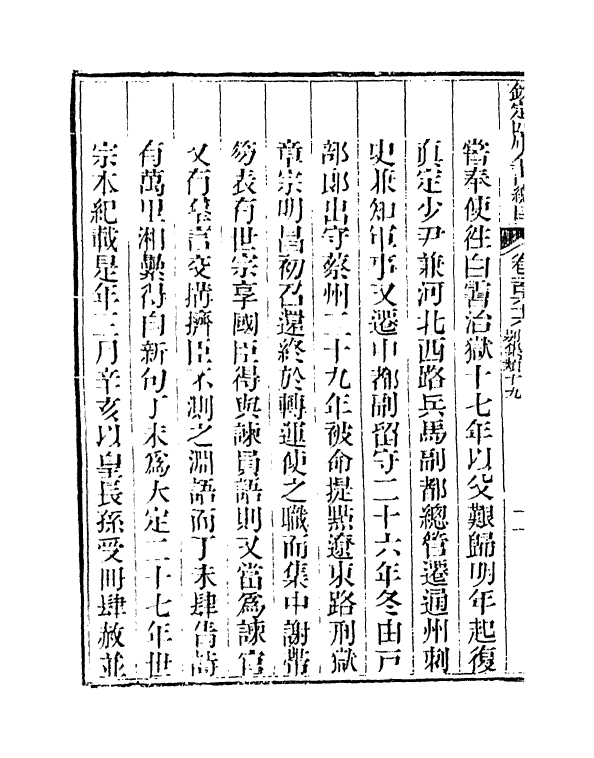 欽定四庫全書總目 卷一百六十六 別集類十九
嘗奉使往白霫治獄十七年以父艱歸明年起復
真定少尹兼河北西路兵馬副都總管遷通州刺
史兼知軍事又遷中都副留守二十六年冬由戶
部郎出守蔡州二十九年被命提點遼東路刑獄
章宗明昌初召還終於轉運使之職而集中謝帶
笏表有世宗享國臣得與諫員語則又當為諫官
又有羣言交搆擠臣不測之淵語而丁未肆眚詩
有萬里湘纍得自新句丁未為大定二十七年世
宗本紀載是年三月辛亥以皇長孫受冊肆赦並